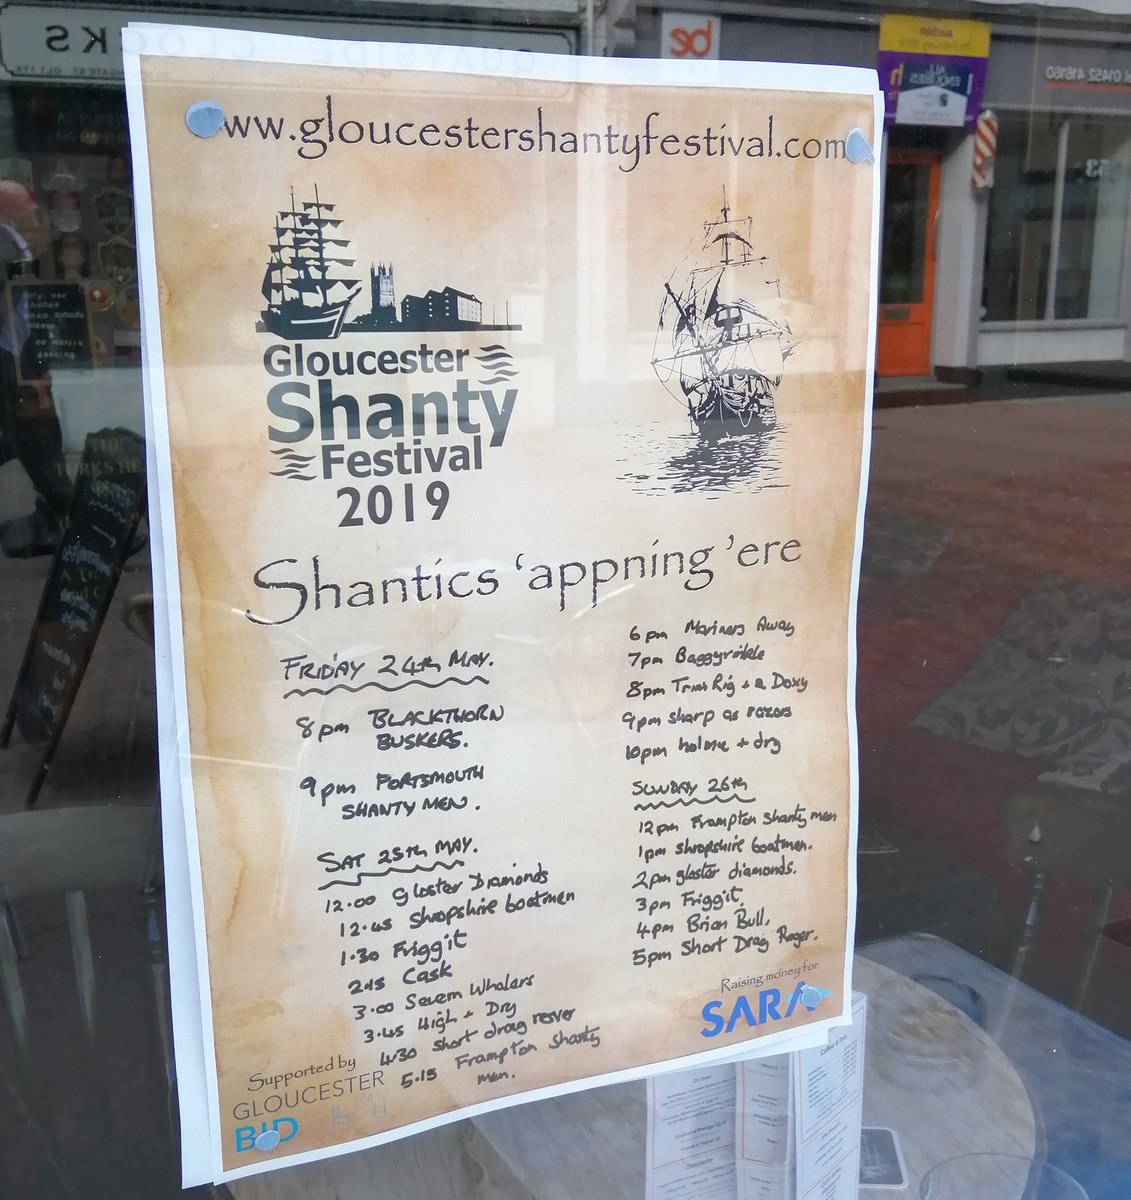 www.gloucestershantyfestival.com
Gloucester
Shanty
Festival
2019
Shanties 'appning 'ere
FRIDAY 24TH MAY.
8pm BLACKTHORN
BUSKERS.
9pm PORTSMOUTH
SHANTY MEN.
SAT 25TH MAY.
12.00 Gloster Diamonds
12.45 Shropshire boatmen
1.30 Friggit
2.15 Cask
3.00 Severn Whalers
3.45 High + Dry
4.30 Short drag
5.15 Frampton Shanty
men.
6pm Mariners Away
7pm Baggyrinkle
8pm Trim Rig + a Doxy
9pm sharp as razors
10pm holme + dry
SUNDAY 26TH
12pm Frampton Shanty men
1pm shropshire boatmen.
2pm gloster diamonds.
3pm Friggit,
4pm Brian Bull,
5pm Short Drag Roger.
Raising money for
SARA
Supported by
GLOUCESTER
BID
QUAYSIDE CLOCKS
be
auction
01452 416160
53
THE
TURKS HE
Coffee & Tea
On Toast